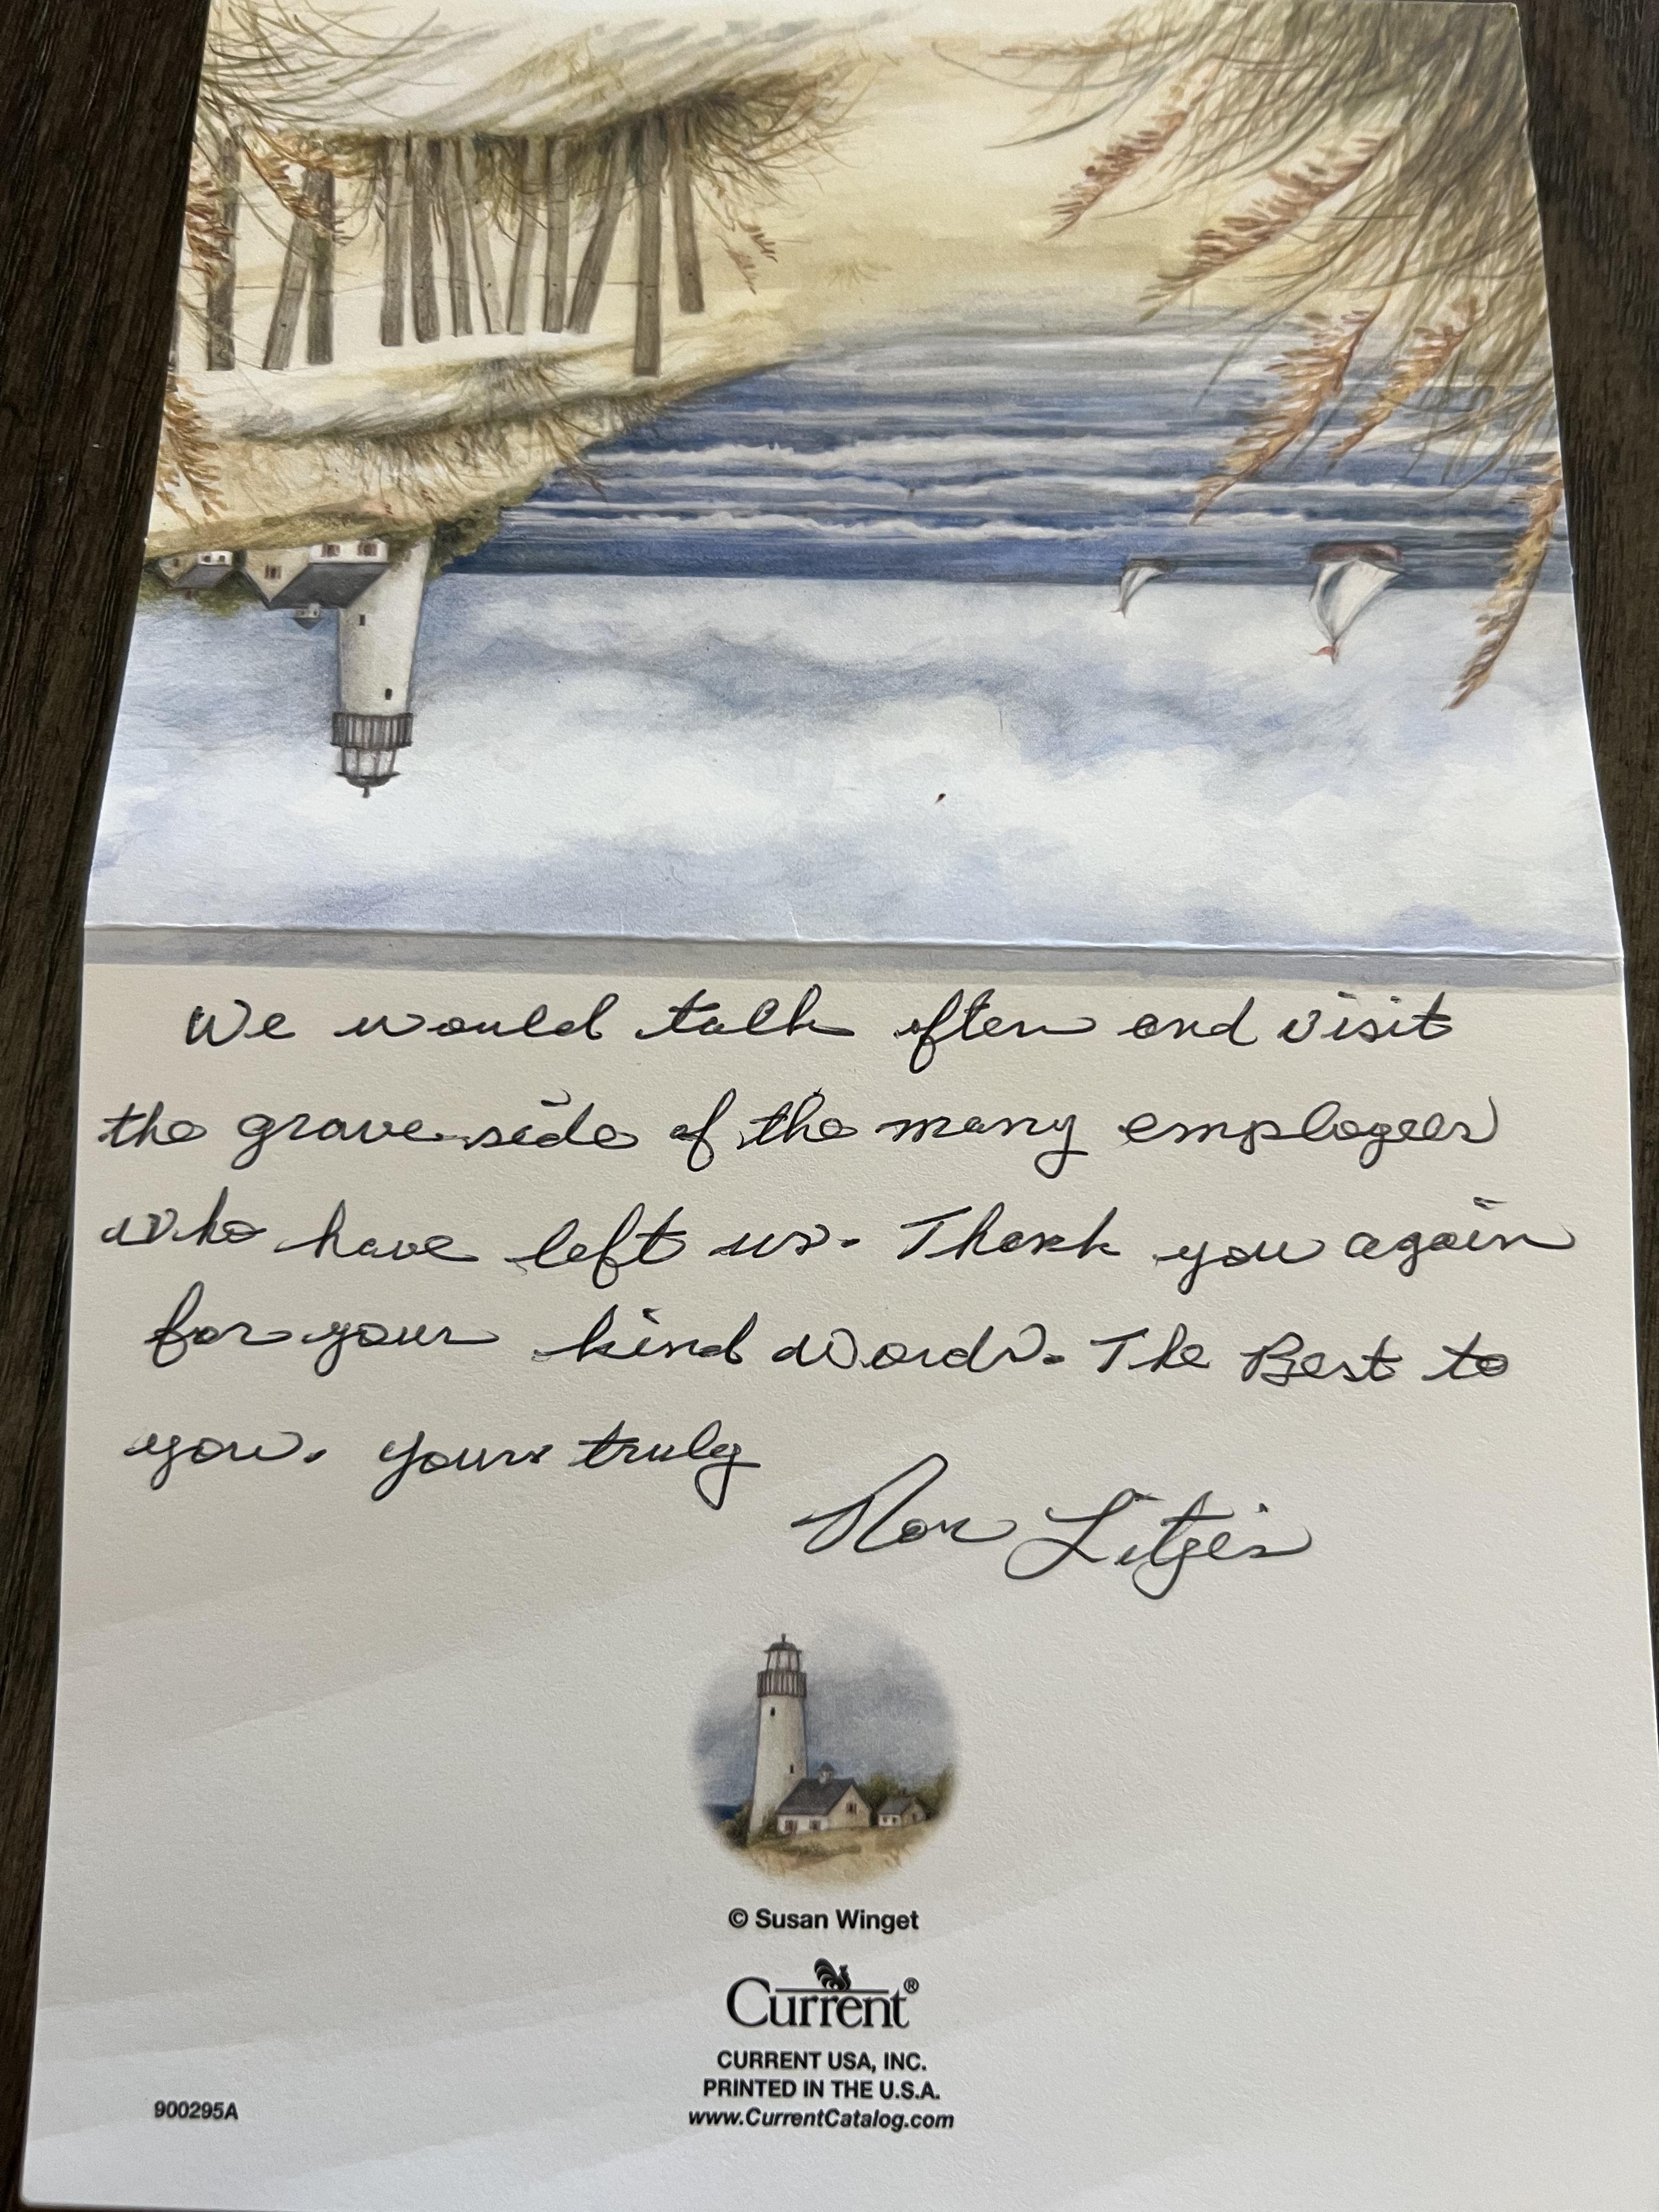 We would talk often and visit
the grave side of the many employees
who have left us. Thank you again
for your kind words. The Best to
you. yours truly
© Susan Winget
Current®
CURRENT USA, INC.
PRINTED IN THE U.S.A.
www.CurrentCatalog.com
900295A